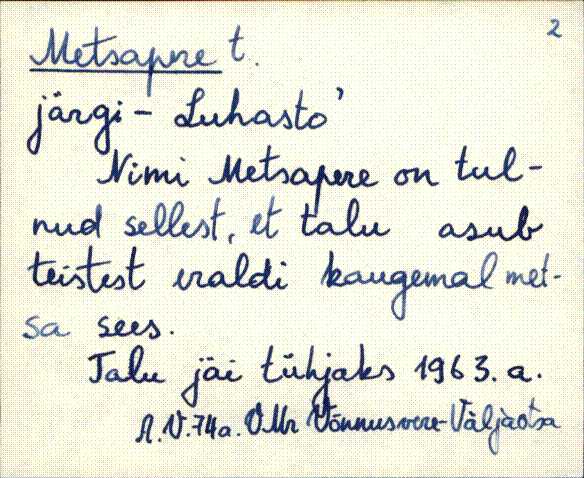 2
Metsapere t.
järgi - Luhasto'
Nimi Metsapere on tul-
nud sellest, et talu asub
teistest eraldi kaugemal met-
sa sees.
Talu jäi tühjaks 1963. a.
A.V. 74a. VMr Võnnusvere-Väljaotsa